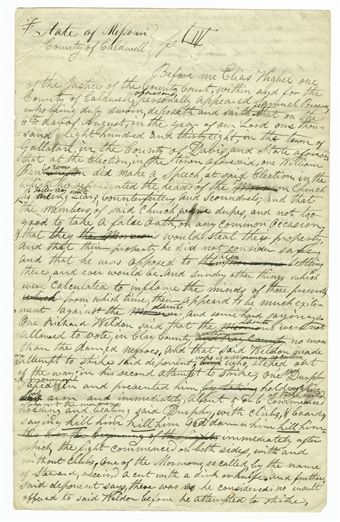 State of Missouri
County of Caldwell
Before me Elias Higbee one
of the Justice of the County Court, within and for the
County of Caldwell, personally appeared Samuel Brown
who being duly sworn, deposeth and saith that on the
6 to day of August, in the year of our Lord one thou-
sand Eight hundred and thirty eight, in the town of
Gallatin, in the County of Davis, and State aforesaid
that at the Election, in the town aforesaid, one William
did make a Speech at said Election, in the
which he represented the leaders of the Church
as being Liars, counterfeiters and scoundrels; and that
the Members of said Church were dupes, and not too
good to take a false oath, on any common occasion,
that they would steal their property,
and that their property he did not consider safe,
and that he was opposed to their settling
there and ever would be. and sundry other things which
were calculated to inflame the minds of those present,
from which time there appeared to be much excite-
ment against the and some hard sayings,
One Richard Weldon said that the were not
allowed to vote, in Clay County, no more
than the damned negroes, and that said Weldon made
attempt to strike said deponent who stepped out
of the way; in his second attempt at striking, One Durphy
stepped in and prevented him by
arm and immediately, about 8 or 10 Commenced
pushing and beating said Durphy, with clubs, & boards,
saying kill him, kill him, God damn him kill him
immediately after
which the fight commenced on both sides, with and
without clubs, One of the Mormons so called, by the name
of received a cut with a dirk or knife. And further
said deponent says, there was as he considered no insult
offered to said Weldon before he attempted to strike,